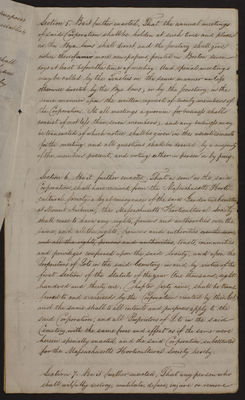 Section 5. Be it further enacted, That the annual meetings
of said Corporation shall be holden at such time and place
as the Bye-Laws shall direct and the Secretary shall give
notice thereof in one or more newspapers printed in Boston seven
days at least before the time of meeting. And special meetings
may be called by the Trustees in the same manner unless
otherwise directed by the Bye Laws, or by the Secretary, in the
same manner upon the written request of twenty members of
the Corporation. At all meetings a quorum for business shall
consist of not less than seven members; and any business may
be transacted of which notice shall be given in the advertisements
for the meeting, and all questions shall be decided by a majority
of the members present, and voting either in person or by proxy.
Section 6. Be it further enacted, That as soon as the said
Corporation shall have received from the Massachusetts Horti-
cultural Society a legal conveyance of the said Garden & Cemetery
at Mount Auburn, the Massachusetts Horticultural Society
shall cease to have any rights, powers and authorities over the
same, and all the rights, powers and authorities
trusts, immunities and
privileges conferred upon the said Society, and upon the
Proprietors of Lots in the said Cemetery in and by virtue of the
first Section of the Statute of the year One thousand, eight
hundred and thirty one, Chapter sixty nine, shall be trans-
ferred to and exercised by the Corporation created by this Act,
and the same shall to all intents and purposes apply to the
said Corporation, and all Proprietors of Lots in the said
Cemetery with the same force and effect as if the same were
herein specially enacted, and the said Corporation substituted
for the Massachusetts Horticultural Society thereby.
Section 7. Be it further enacted, That any person who
shall wilfully destroy, mutilate, deface, injure or remove